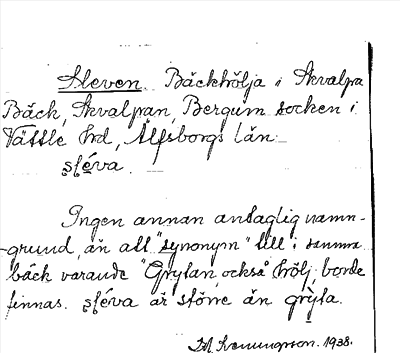 Sleven. Bäckhölja i Skvalpa
Bäck, Skvalpån, Bergum socken i
Vättle hd, Älfsborgs län.
sleva.
Ingen annan antaglig namn-
-grund, än att "synonym" till i samma
bäck varande "Grytan, också hölj, borde
finnas. sleva är större än gryta.
1938.